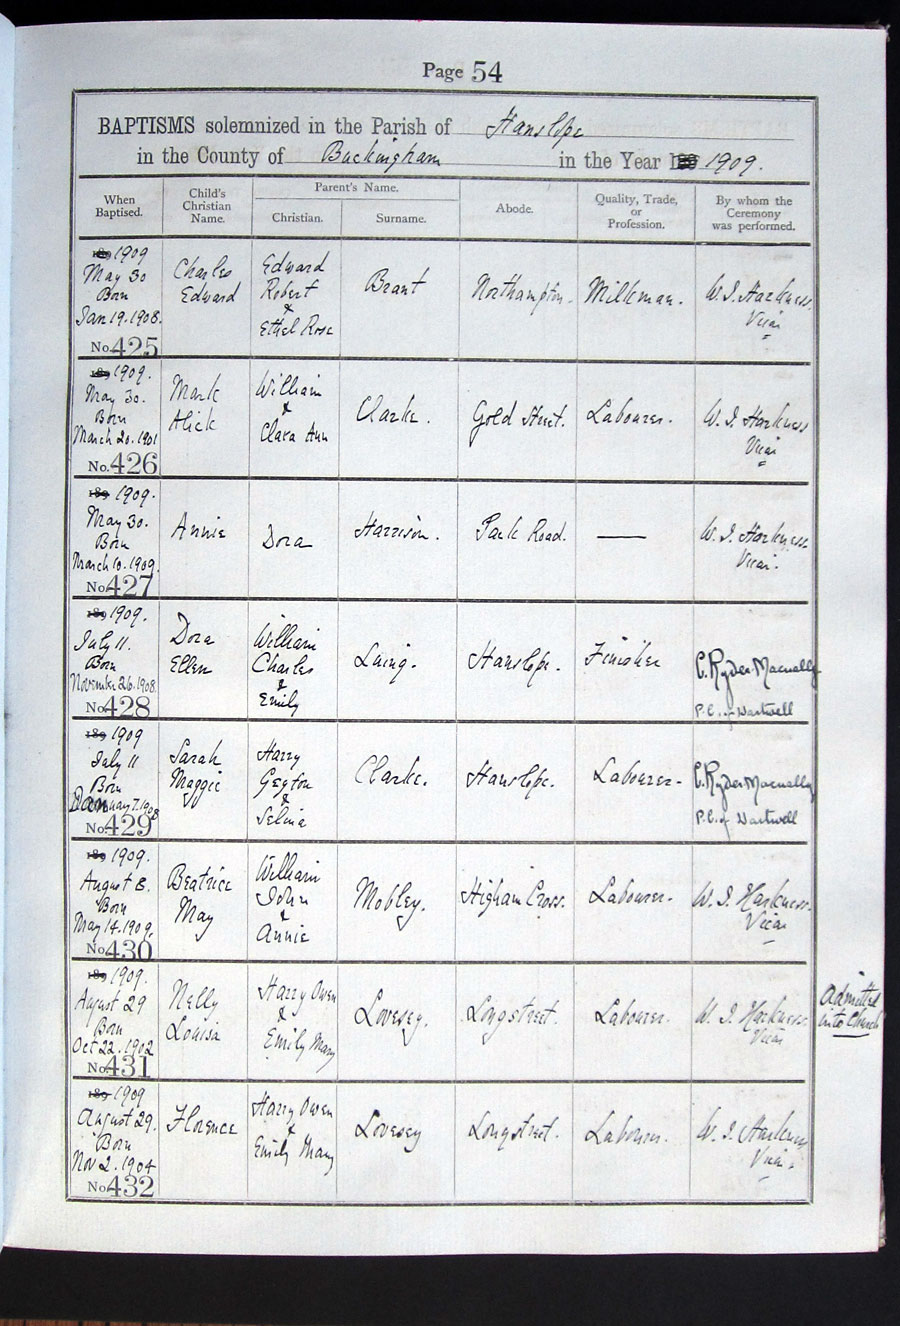 Page 54
BAPTISMS solemnized in the Parish of Hanslope
in the County of Buckingham in the Year 1909.
When Baptised.
Child's Christian Name.
Parent's Name.
Christian.
Surname.
Abode.
Quality, Trade, or Profession.
By whom the Ceremony was performed.
189 1909
May 30
Born
Jan 19. 1908.
No. 425
Charles
Edward
Edward
Robert
&
Ethel Rose
Brant
Northampton.
Milkman.
W. J. Harkness.
Vicar
189 1909.
May 30.
Born
March 20. 1901
No. 426
Mark
Alick
William
&
Clara Ann
Clarke.
Gold Street.
Labourer.
W. J. Harkness
Vicar
189 1909.
May 30.
Born
March 10. 1909.
No. 427
Annie
Dora
Harrison.
Park Road.
—
W. J. Harkness
Vicar.
189 1909.
July 11.
Born
November 26. 1908.
No. 428
Dora
Ellen
William
Charles
&
Emily
Laing.
Hanslope.
Finisher
C. Ryder-Macnally
P.C. of Hartwell
189 1909
July 11
Born
January 7. 1908
No. 429
Sarah
Maggie
Harry
Geyton
&
Selina
Clarke.
Hanslope.
Labourer.
C. Ryder Macnally
P.C. of Hartwell
189 1909.
August 8.
Born
May 14. 1909.
No. 430
Beatrice
May
William
John
&
Annie
Mobley.
Higham Cross.
Labourer.
W. J. Harkness.
Vicar
189 1909.
August 29
Born
Oct 22. 1902
No. 431
Nelly
Louisa
Harry Owen
&
Emily Mary
Lovesey.
Longstreet.
Labourer.
W. J. Harkness.
Vicar
admitted
into Church
189 1909
August 29.
Born
Nov 2. 1904
No. 432
Florence
Harry Owen
&
Emily Mary
Lovesey
Longstreet.
Labourer.
W. J. Harkness
Vicar